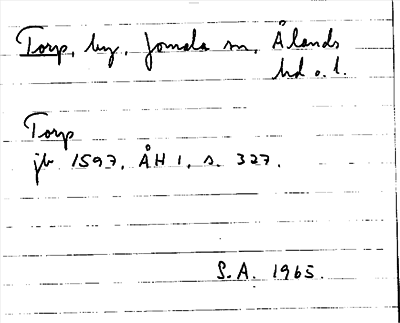 Torp, by, Jomala sn, Ålands
hd o. l.
Torp
jb 1597, ÅH 1, s. 327.
S.A. 1965.